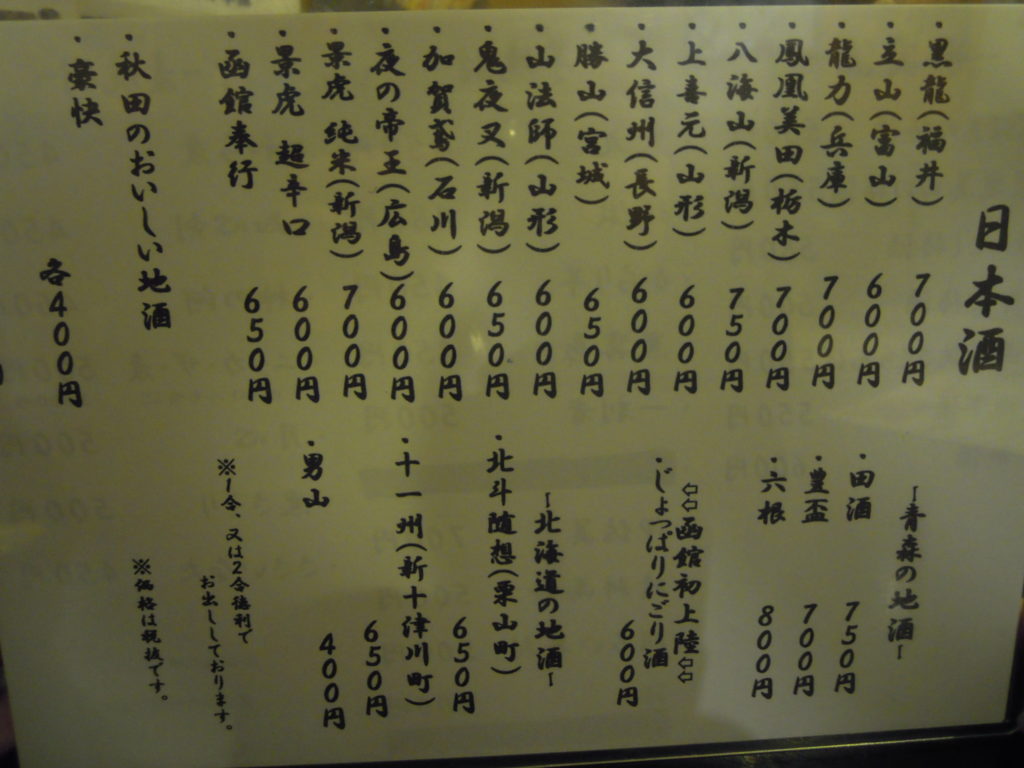 日本酒
・黒龍(福井) 700円
・立山(富山) 600円
・龍力(兵庫) 700円
・鳳凰美田(栃木) 700円
・八海山(新潟) 750円
・上喜元(山形) 600円
・大信州(長野) 600円
・勝山(宮城) 650円
・山法師(山形) 600円
・鬼夜叉(新潟) 650円
・加賀鳶(石川) 600円
・夜の帝王(広島) 600円
・景虎 純米(新潟) 700円
・景虎 超辛口 600円
・函館奉行 650円
・秋田のおいしい地酒
・豪快
各400円
ー青森の地酒ー
・田酒 750円
・豊盃 700円
・六根 800円
⇦⇦函館初上陸⇦⇦
・じょっぱりにごり酒 600円
ー北海道の地酒ー
・北斗随想(栗山町) 650円
・十一州(新十津川町) 650円
・男山 400円
※1合、又は2合徳利で
お出ししております。
※価格は税抜です。